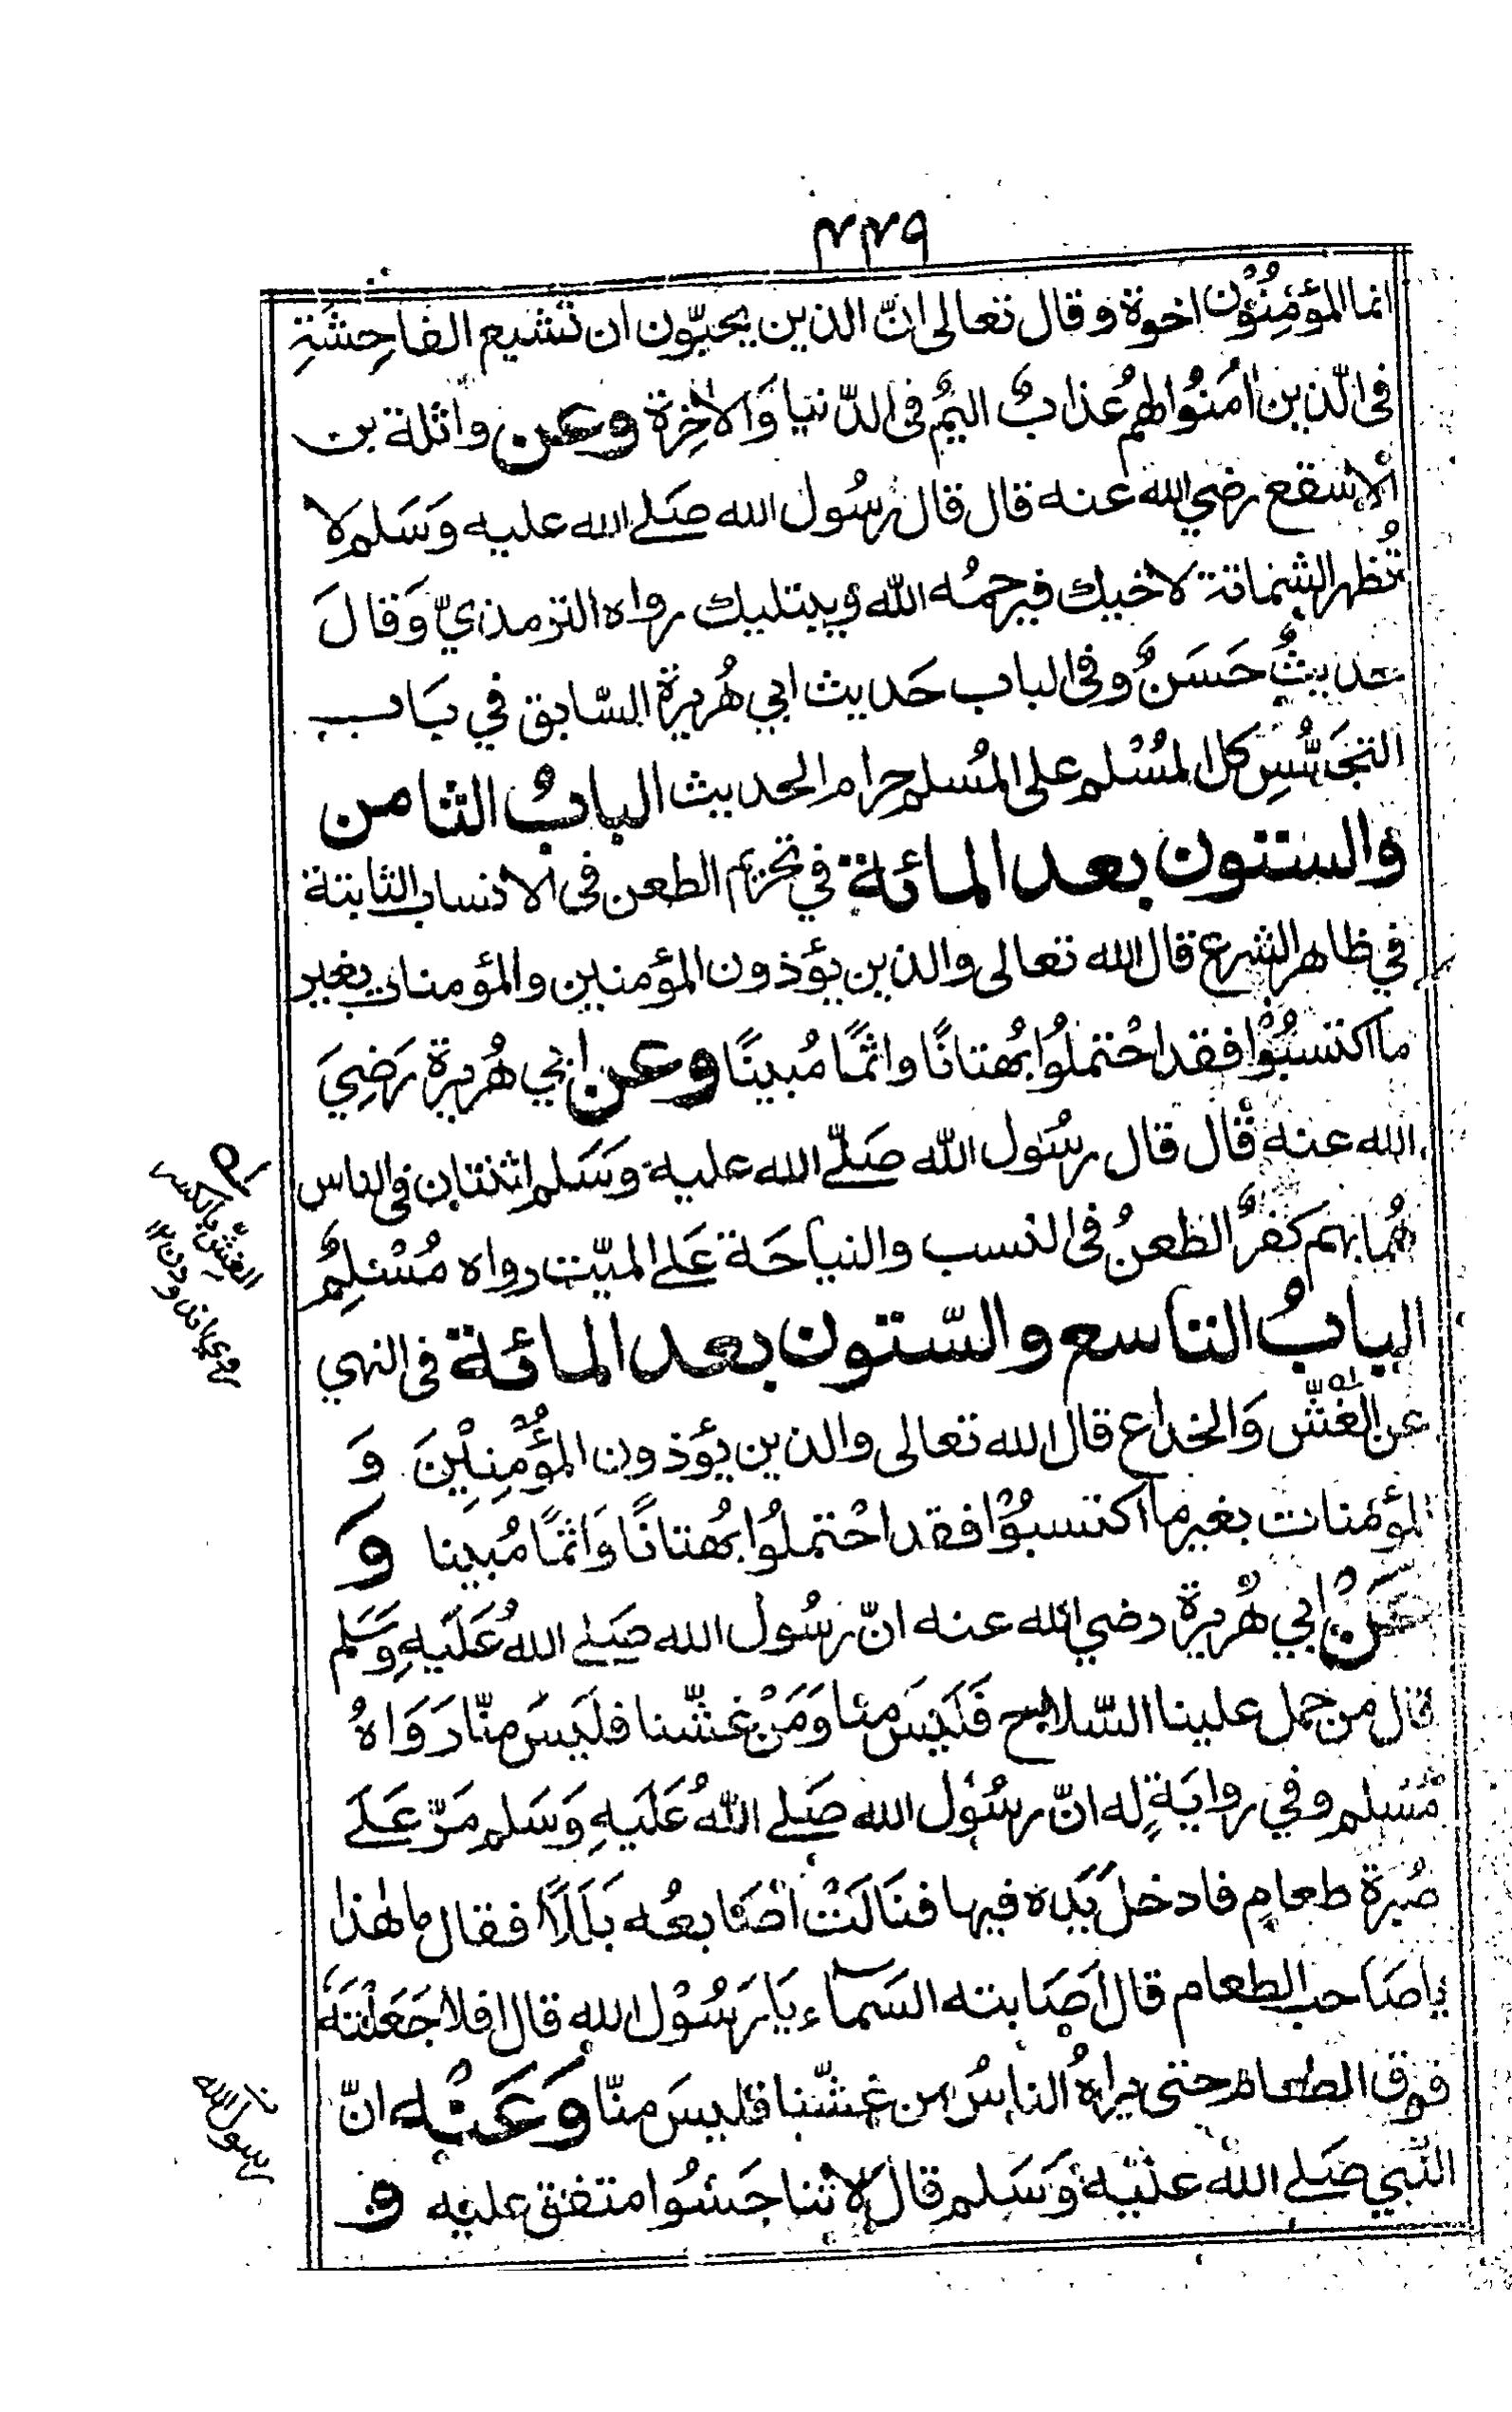 ٤٤٩
انما المؤمِنُوْن اخوة وقال تعالى انّ الذين يحبّون ان تشيع الفاحِشَةِ
فى الّذين اٰمَنُوا لهم عُذابٌ اليمٌ فى الدّنيا وَالاٰخِرة وعن واثلة بن
الاسقع رضي الله عنه قال قال رسُول الله صَلے الله عليه وَسَلم لا
تُظهر الشماتة لاخيك فيرحمُه الله ويبتليك رواه الترمذيّ وَقالَ
حديثٌ حَسَنٌ وفى الباب حَديث ابي هُريرة السّابق في بَاب
التجَسُّسِ كل المُسْلم على المُسلم حرام الحديث البابُ الثامن
والستون بعد المائة في تحريم الطعن فى الانساب الثابتة
في ظاهر الشرع قال الله تعالى والذين يؤذون المؤمنين والمؤمنات بغير
ما اكتسبُوْا فقد احْتملُوا بُهتانًا واثمًا مُبينًا وعن ابي هُريرة رَضِيَ
الله عنه قال قال رسُول الله صَلّے الله عليه وَسَلم اثنتان فى الناس
هُما بهم كفرٌ الطعنُ فى النسب والنياحَة عَلے الميّت رواه مُسْلِمٌ
البابُ التاسع والسّتون بعد المائة فى النهي
عن الغشّ وَالخداع قال الله تعالى والذين يؤذون المؤْمِنِيْنَ وَ
المؤمنات بغير ما اكتسبُوْا فقد احْتملُوا بُهتانًا وَاثمًا مُبينا وَ
عَنْ ابي هُريرة رضي الله عنه انّ رسُول الله صَلے اللهُ عَلَيهِ وَسَلم
قال من حمل علينا السّلاح فَلَيْسَ منا وَمَنْ غشّنا فلَيسَ منّا رَوَاهُ
مُسْلم وفي روايَةٍ له انّ رسُوْل الله صَلے اللهُ عَلَيهِ وَسَلم مَرّ عَلَے
صُبرة طعامٍ فادخلَ يَدَه فيها فنَالَتْ اصَابعُه بَلَلًا فقال ما هٰذا
يا صَاحب الطعام قال اَصَابته السَمآء يَا رَسُوْل الله قال افلا جَعَلْتَه
فوق الطعام حتى يراهُ الناسُ من غشّنا فليسَ منّا وَعَنْه انّ
النّبي صَلے الله عليه وَسَلم قال لا تناجَشُوا متفق عليه و
الغشّ بالكسر
رسول الله